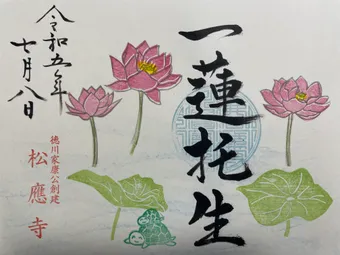 一蓮托生
令和五年
七月八日
徳川家康公創建
松應寺